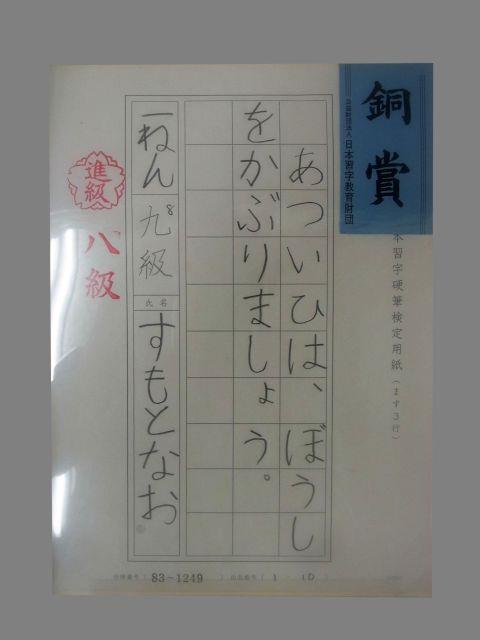 銅賞
公益財団法人 日本習字教育財団
本習字硬筆検定用紙(ます3行)
あついひは、ぼうし
をかぶりましょう。
一ねん 九級 8
氏名 すもとなお
進級
八級
83-1249 ( 1 - 10 )